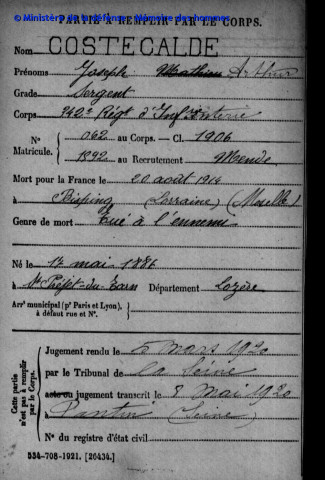 © Ministère de la défense - Mémoire des hommes
PARTIE À REMPLIR PAR LE CORPS.
Nom COSTECALDE
Prénoms Joseph Mathieu Arthur
Grade Sergent
Corps 342e Régt d'Infanterie
N° 062 au Corps. — Cl. 1906
Matricule. 1392 au Recrutement Mende
Mort pour la France le 20 août 1914
à Bisping (Lorraine) (Moselle)
Genre de mort Tué à l'ennemi
Né le 17 mai 1886
à St Préjet-du-Tarn Département Lozère
Arrt municipal (pr Paris et Lyon),
à défaut rue et N°.
Cette partie n'est pas à remplir par le Corps.
Jugement rendu le 5 mars 1920
par le Tribunal de la Seine
acte ou jugement transcrit le 8 mai 1920
à Pantin (Seine)
N° du registre d'état civil
534-708-1921. [26434.]